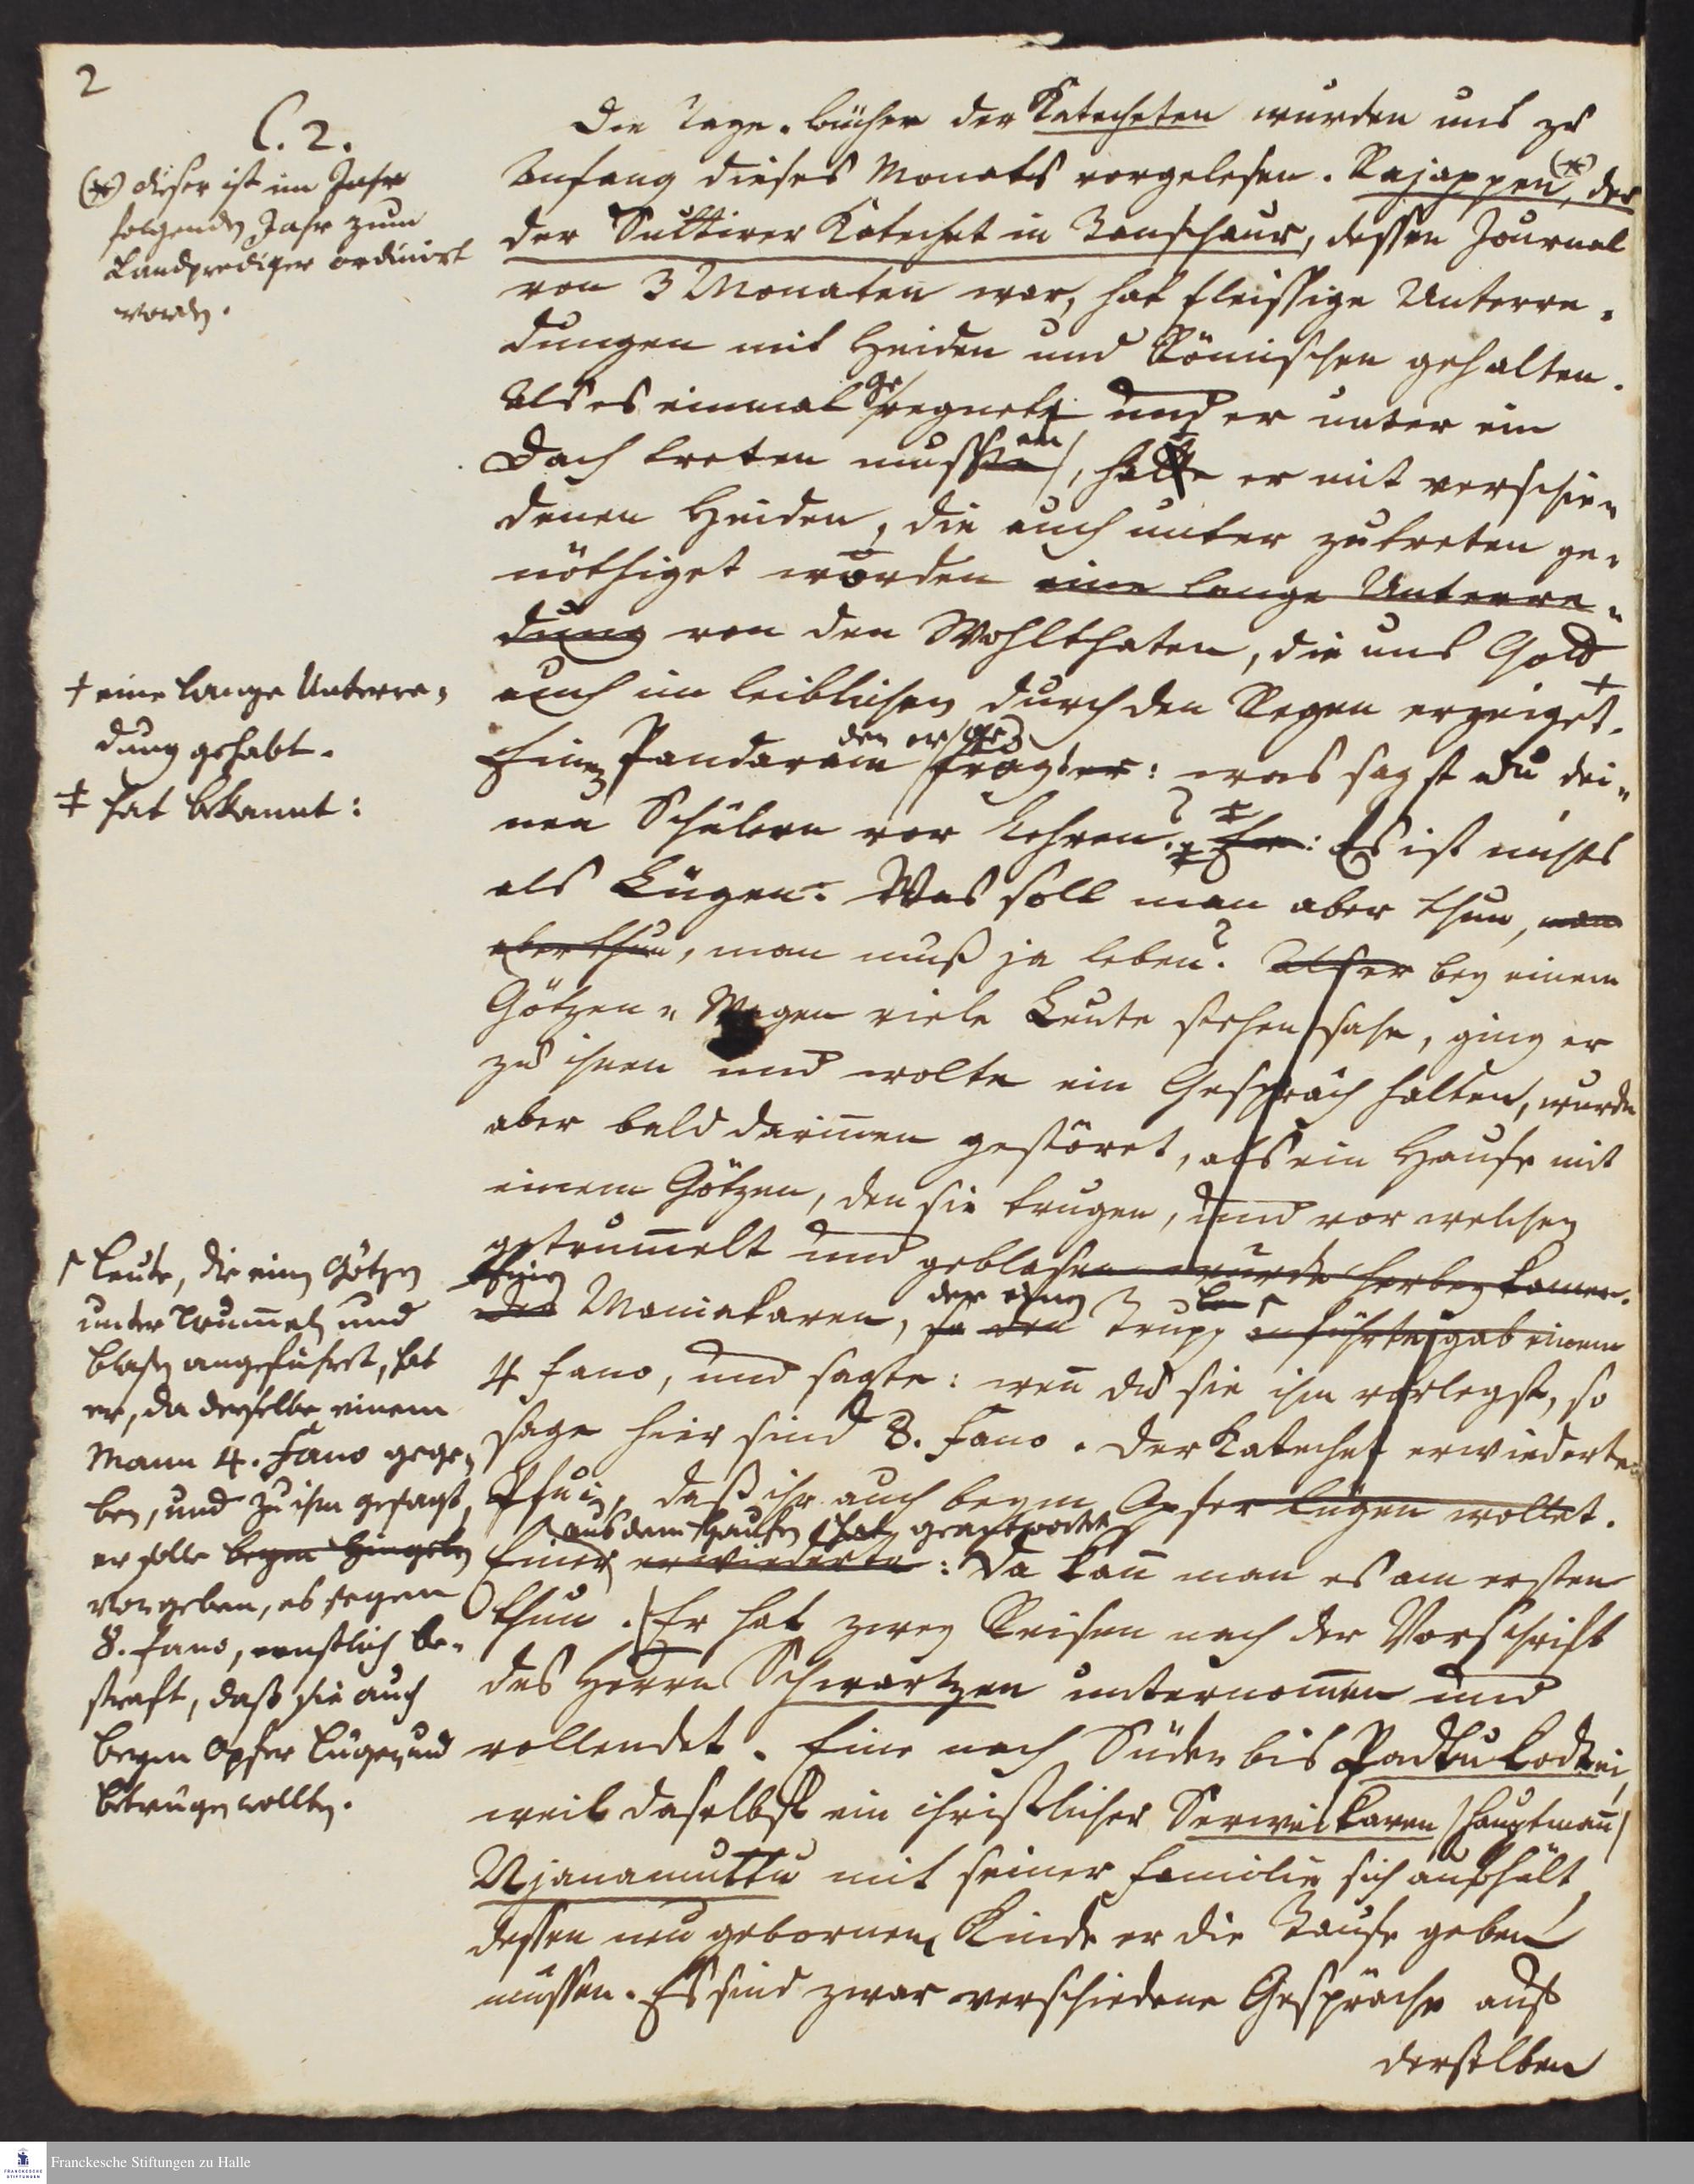 2
C. 2.
(*) dieser ist im Jahr
folgenden Jahr zum
Landprediger ordinirt
worden.
Die Tage-bücher der Katecheten wurden uns zu
Anfang dieses Monats vorgelesen. Rajappen (*), der
der Suttirer Katechet in Tanschaur, dessen Journal
von 3 Monaten war, hat fleissige Unterre-
dungen mit Heiden und Römischen gehalten.
Als es einmal geregnet und er unter ein
Dach treten mussen, hatte er mit verschie-
denen Heiden, die auch unter zutreten ge-
nöthiget worden eine lange Unterre-
dung von den Wohlthaten, die uns Gott
auch im leiblichen durch den Regen erzeiget. †
† eine lange Unterre-
dung gehabt.
‡ hat bekannt:
Einen Pandaram den er gefragt er: was sagst du dei-
nen Schülern vor Lehren? ‡ Er: Es ist nichts
als Lügen. Was soll man aber thun, man
aber thun, man muß ja leben? Als er bey einem
Götzen-Wagen viele Leute stehen sahe, ging er
zu ihnen und wolte ein Gespräch halten, wurde
aber bald darinnen gestöret, als ein Haufe mit
einem Götzen, den sie trugen, und vor welchen
getrummelt und geblasen wurde herbey kamen.
Maniakaren, der einen Trupp anführte, gab einem
4 fano, und sagte: wenn du sie ihm vorlegst, so
sage hier sind 8. Fano. Der Katechet erwiederte
Pfui, daß ihr auch beym Opfer lügen wollet.
Leute, die einen Götzen
unter Trummeln und
blasen angeführet, hat
er, da derselbe einem
Mann 4. Fano gege-
ben, und zu ihm gesagt,
er solle beym Hingeben
vorgeben, es seyen
8. Fano, ernstlich be-
straft, daß sie auch
beym Opfer lügen und
betrügen wollten.
Einer aus dem Haufen hat geantwortet erwiederte: Da kann man es am ersten
thun. Er hat zwey Reisen nach der Vorschrift
des Herrn Schwartzen unternommen und
vollendet. Eine nach Süden bis Padtukodtei,
weil daselbst ein christlicher Serweikaren /Hauptmann/
Njanamuttu mit seiner Familie sich aufhält,
dessen neu gebornen Kinde er die Taufe geben
müssen. Es sind zwar verschiedene Gespräche auf
derselben
Franckesche Stiftungen zu Halle